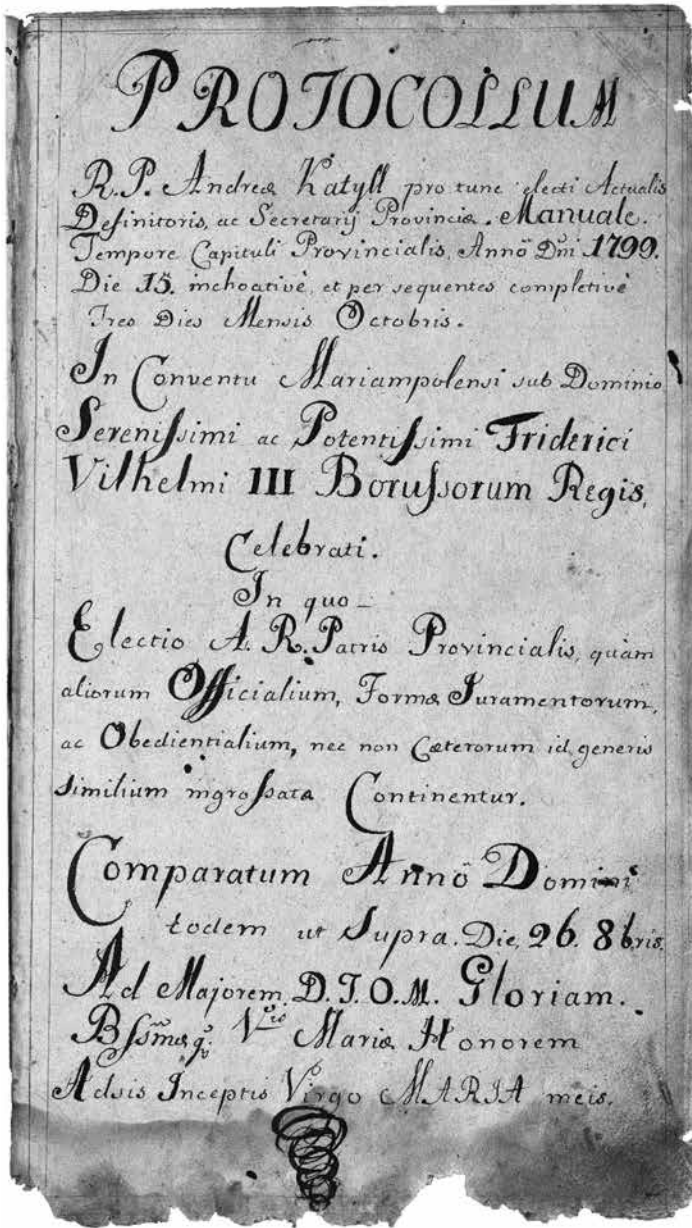 PROTOCOLLUM
R. P. Andreæ Katyll pro tunc electi Actualis
Definitoris, ac Secretarij Provinciæ. Manuale.
Tempore Capituli Provincialis, Annô Dni 1799.
Die 15. inchoativè, et per sequentes completivè
Tres Dies Mensis Octobris.
In Conventu Mariampolensi sub Dominio
Serenissimi ac Potentissimi Friderici
Vilhelmi III Borussorum Regis,
Celebrati.
In quo
Electio A. R. Patris Provincialis, quàm
aliorum Officialium, Formæ Juramentorum,
ac Obedientialium, nec non Cæterorum id generis
similium ingrossata Continentur.
Comparatum Annô Domini
eodem ut Supra. Die, 26. 8bris.
Ad Majorem D. T. O. M. Gloriam.
Bssmæq. Vnis Mariæ Honorem
Adsis Inceptis Virgo MARIA meis.